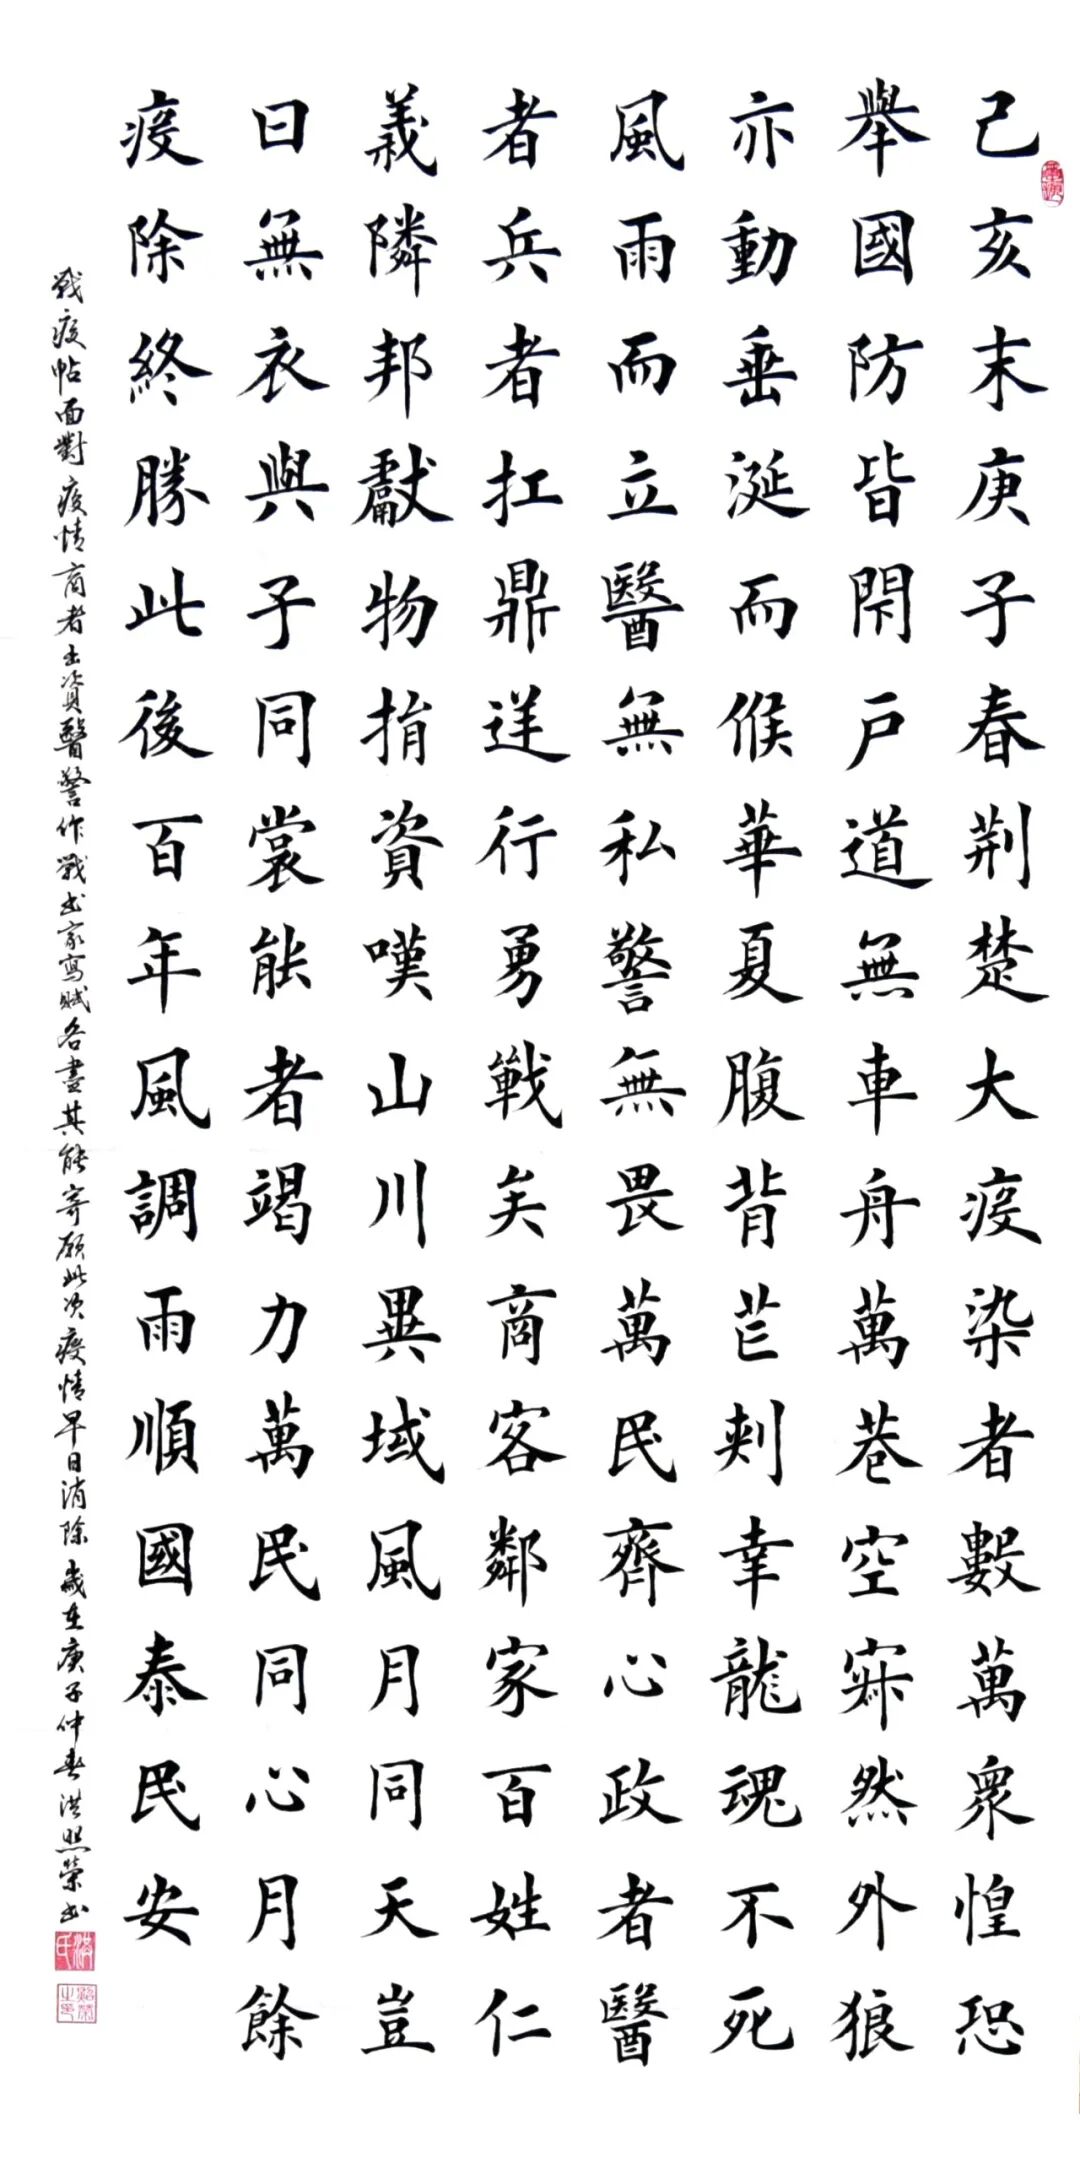 己亥末庚子春荆楚大疫染者數萬衆惶恐
舉國防皆閉戶道無車舟萬巷空寂然外狼
亦動垂涎而候華夏腹背芒刺幸龍魂不死
風雨而立醫無私警無畏萬民齊心政者醫
者兵者扛鼎逆行勇戰矣商客鄰家百姓仁
義隣邦獻物捐資嘆山川異域風月同天豈
曰無衣與子同裳能者竭力萬民同心月餘
疫除終勝此後百年風調雨順國泰民安
戰疫帖面對疫情商者出資醫警作戰書家寫賦各盡其能寄願此次疫情早日消除歲在庚子仲春洪照榮書